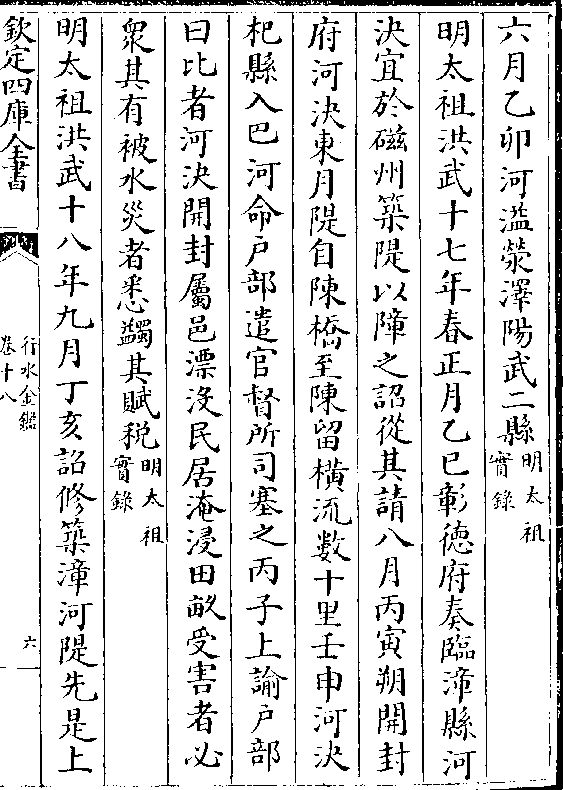 六月乙卯河溢滎澤陽武二縣明太祖實錄
明太祖洪武十七年春正月乙巳彰德府奏臨漳縣河
決宜於磁州築隄以障之詔從其請八月丙寅朔開封
府河決東月隄自陳橋至陳留橫流數十里壬申河決
杞縣入巴河命户部遣官督所司塞之丙子上諭户部
曰比者河決開封屬邑漂沒民居淹浸田畝受害者必
衆其有被水災者悉蠲其賦税明太祖實錄
明太祖洪武十八年九月丁亥詔修築漳河隄先是上
欽定四庫全書
行水金鑑
卷十八
六